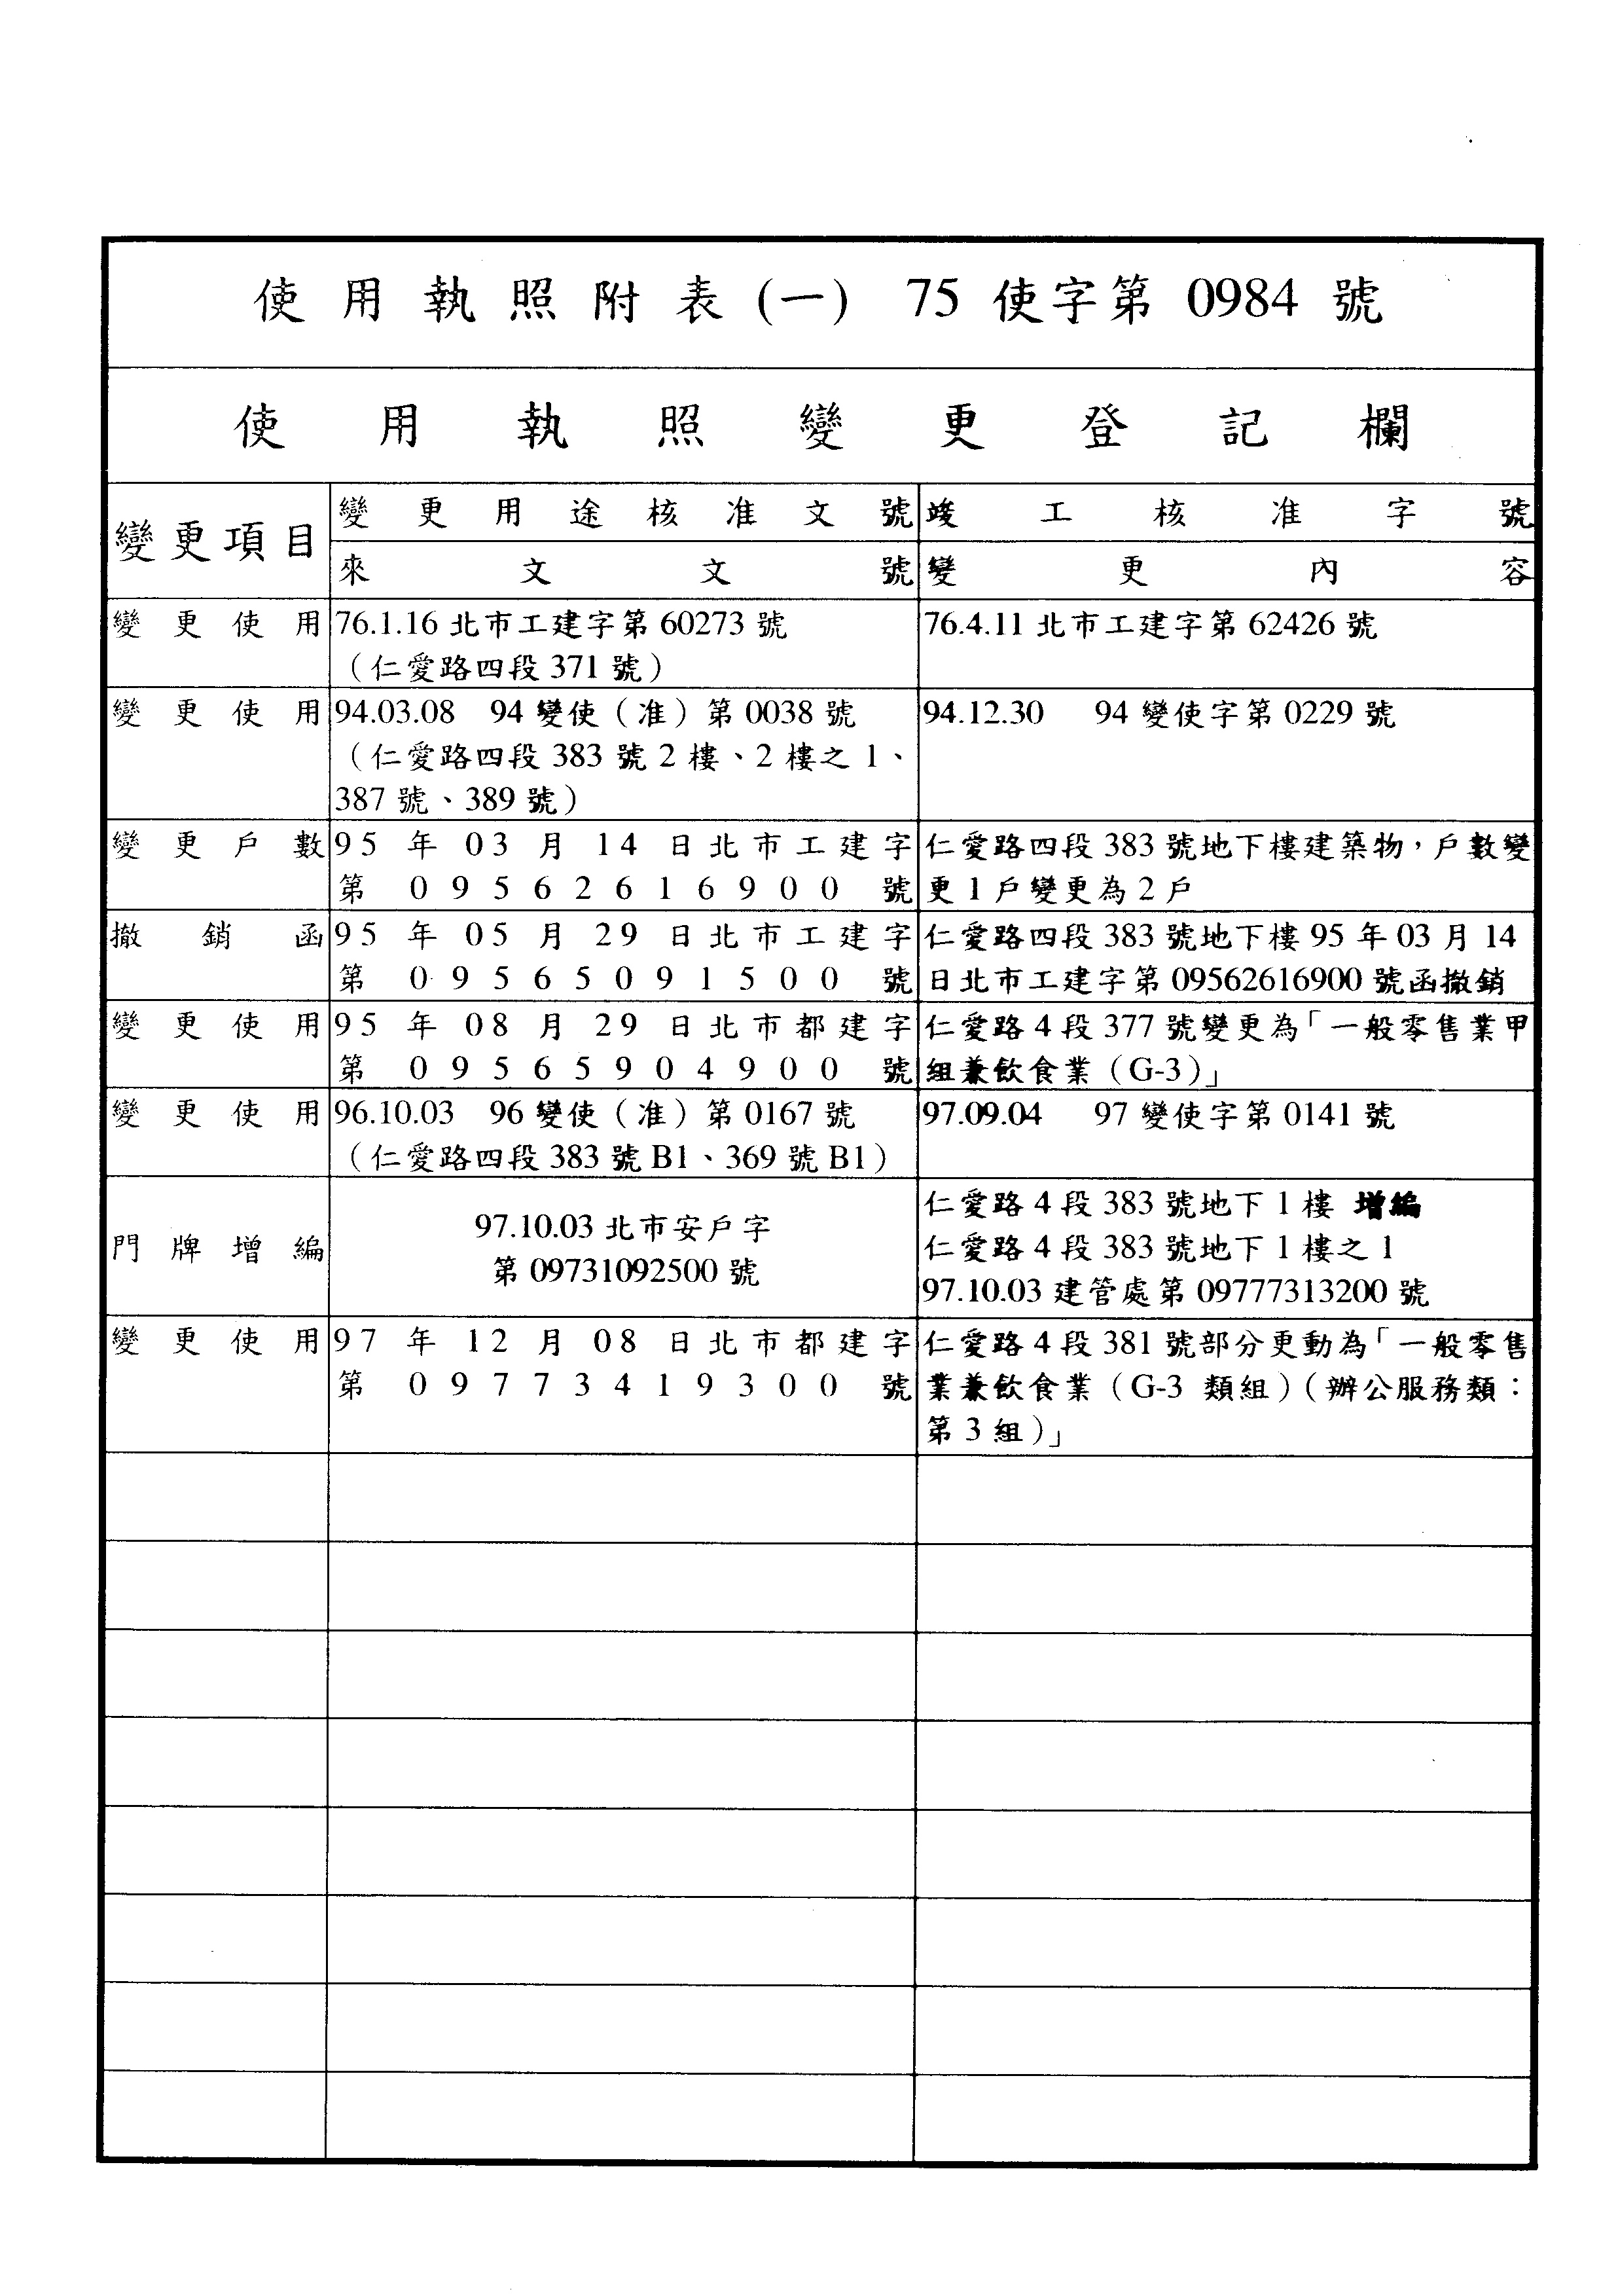 使用執照附表(一) 75 使字第 0984 號
使用執照變更登記欄
變更項目
變更用途核准文號
竣工核准字號
來文文號
變更內容
變更使用
76.1.16 北市工建字第 60273 號
（仁愛路四段 371 號）
76.4.11 北市工建字第 62426 號
變更使用
94.03.08 94 變使（准）第 0038 號
（仁愛路四段 383 號 2 樓、2 樓之 1、
387 號、389 號）
94.12.30 94 變使字第 0229 號
變更戶數
95 年 03 月 14 日北市工建字
第 09562616900 號
仁愛路四段 383 號地下樓建築物，戶數變
更 1 戶變更為 2 戶
撤銷函
95 年 05 月 29 日北市工建字
第 09565091500 號
仁愛路四段 383 號地下樓 95 年 03 月 14
日北市工建字第 09562616900 號函撤銷
變更使用
95 年 08 月 29 日北市都建字
第 09565904900 號
仁愛路 4 段 377 號變更為「一般零售業甲
組兼飲食業（G-3）」
變更使用
96.10.03 96 變使（准）第 0167 號
（仁愛路四段 383 號 B1、369 號 B1）
97.09.04 97 變使字第 0141 號
門牌增編
97.10.03 北市安戶字
第 09731092500 號
仁愛路 4 段 383 號地下 1 樓 增編
仁愛路 4 段 383 號地下 1 樓之 1
97.10.03 建管處第 09777313200 號
變更使用
97 年 12 月 08 日北市都建字
第 09773419300 號
仁愛路 4 段 381 號部分更動為「一般零售
業兼飲食業（G-3 類組）（辦公服務類：
第 3 組）」